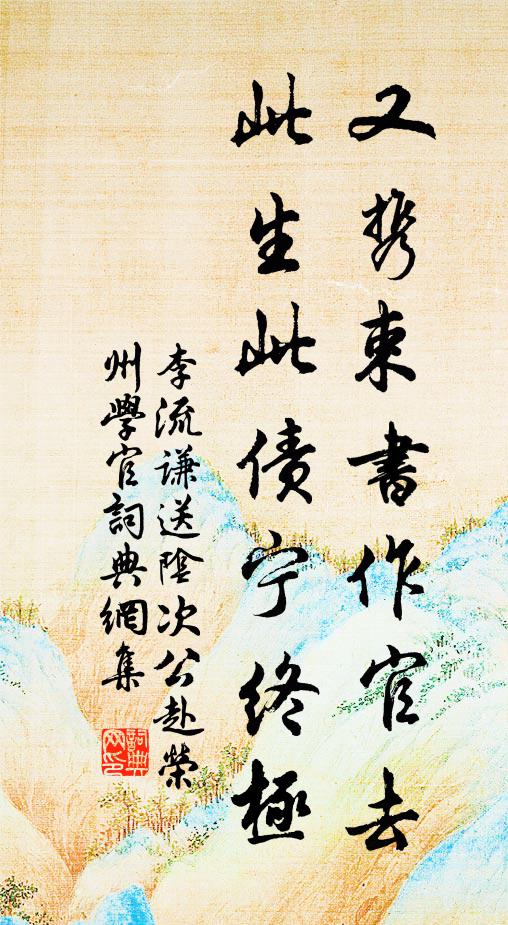 又携束書作官去
此生此债宁終極
李流谦送陰次公赴榮
州學官詞典網集
詞典網印